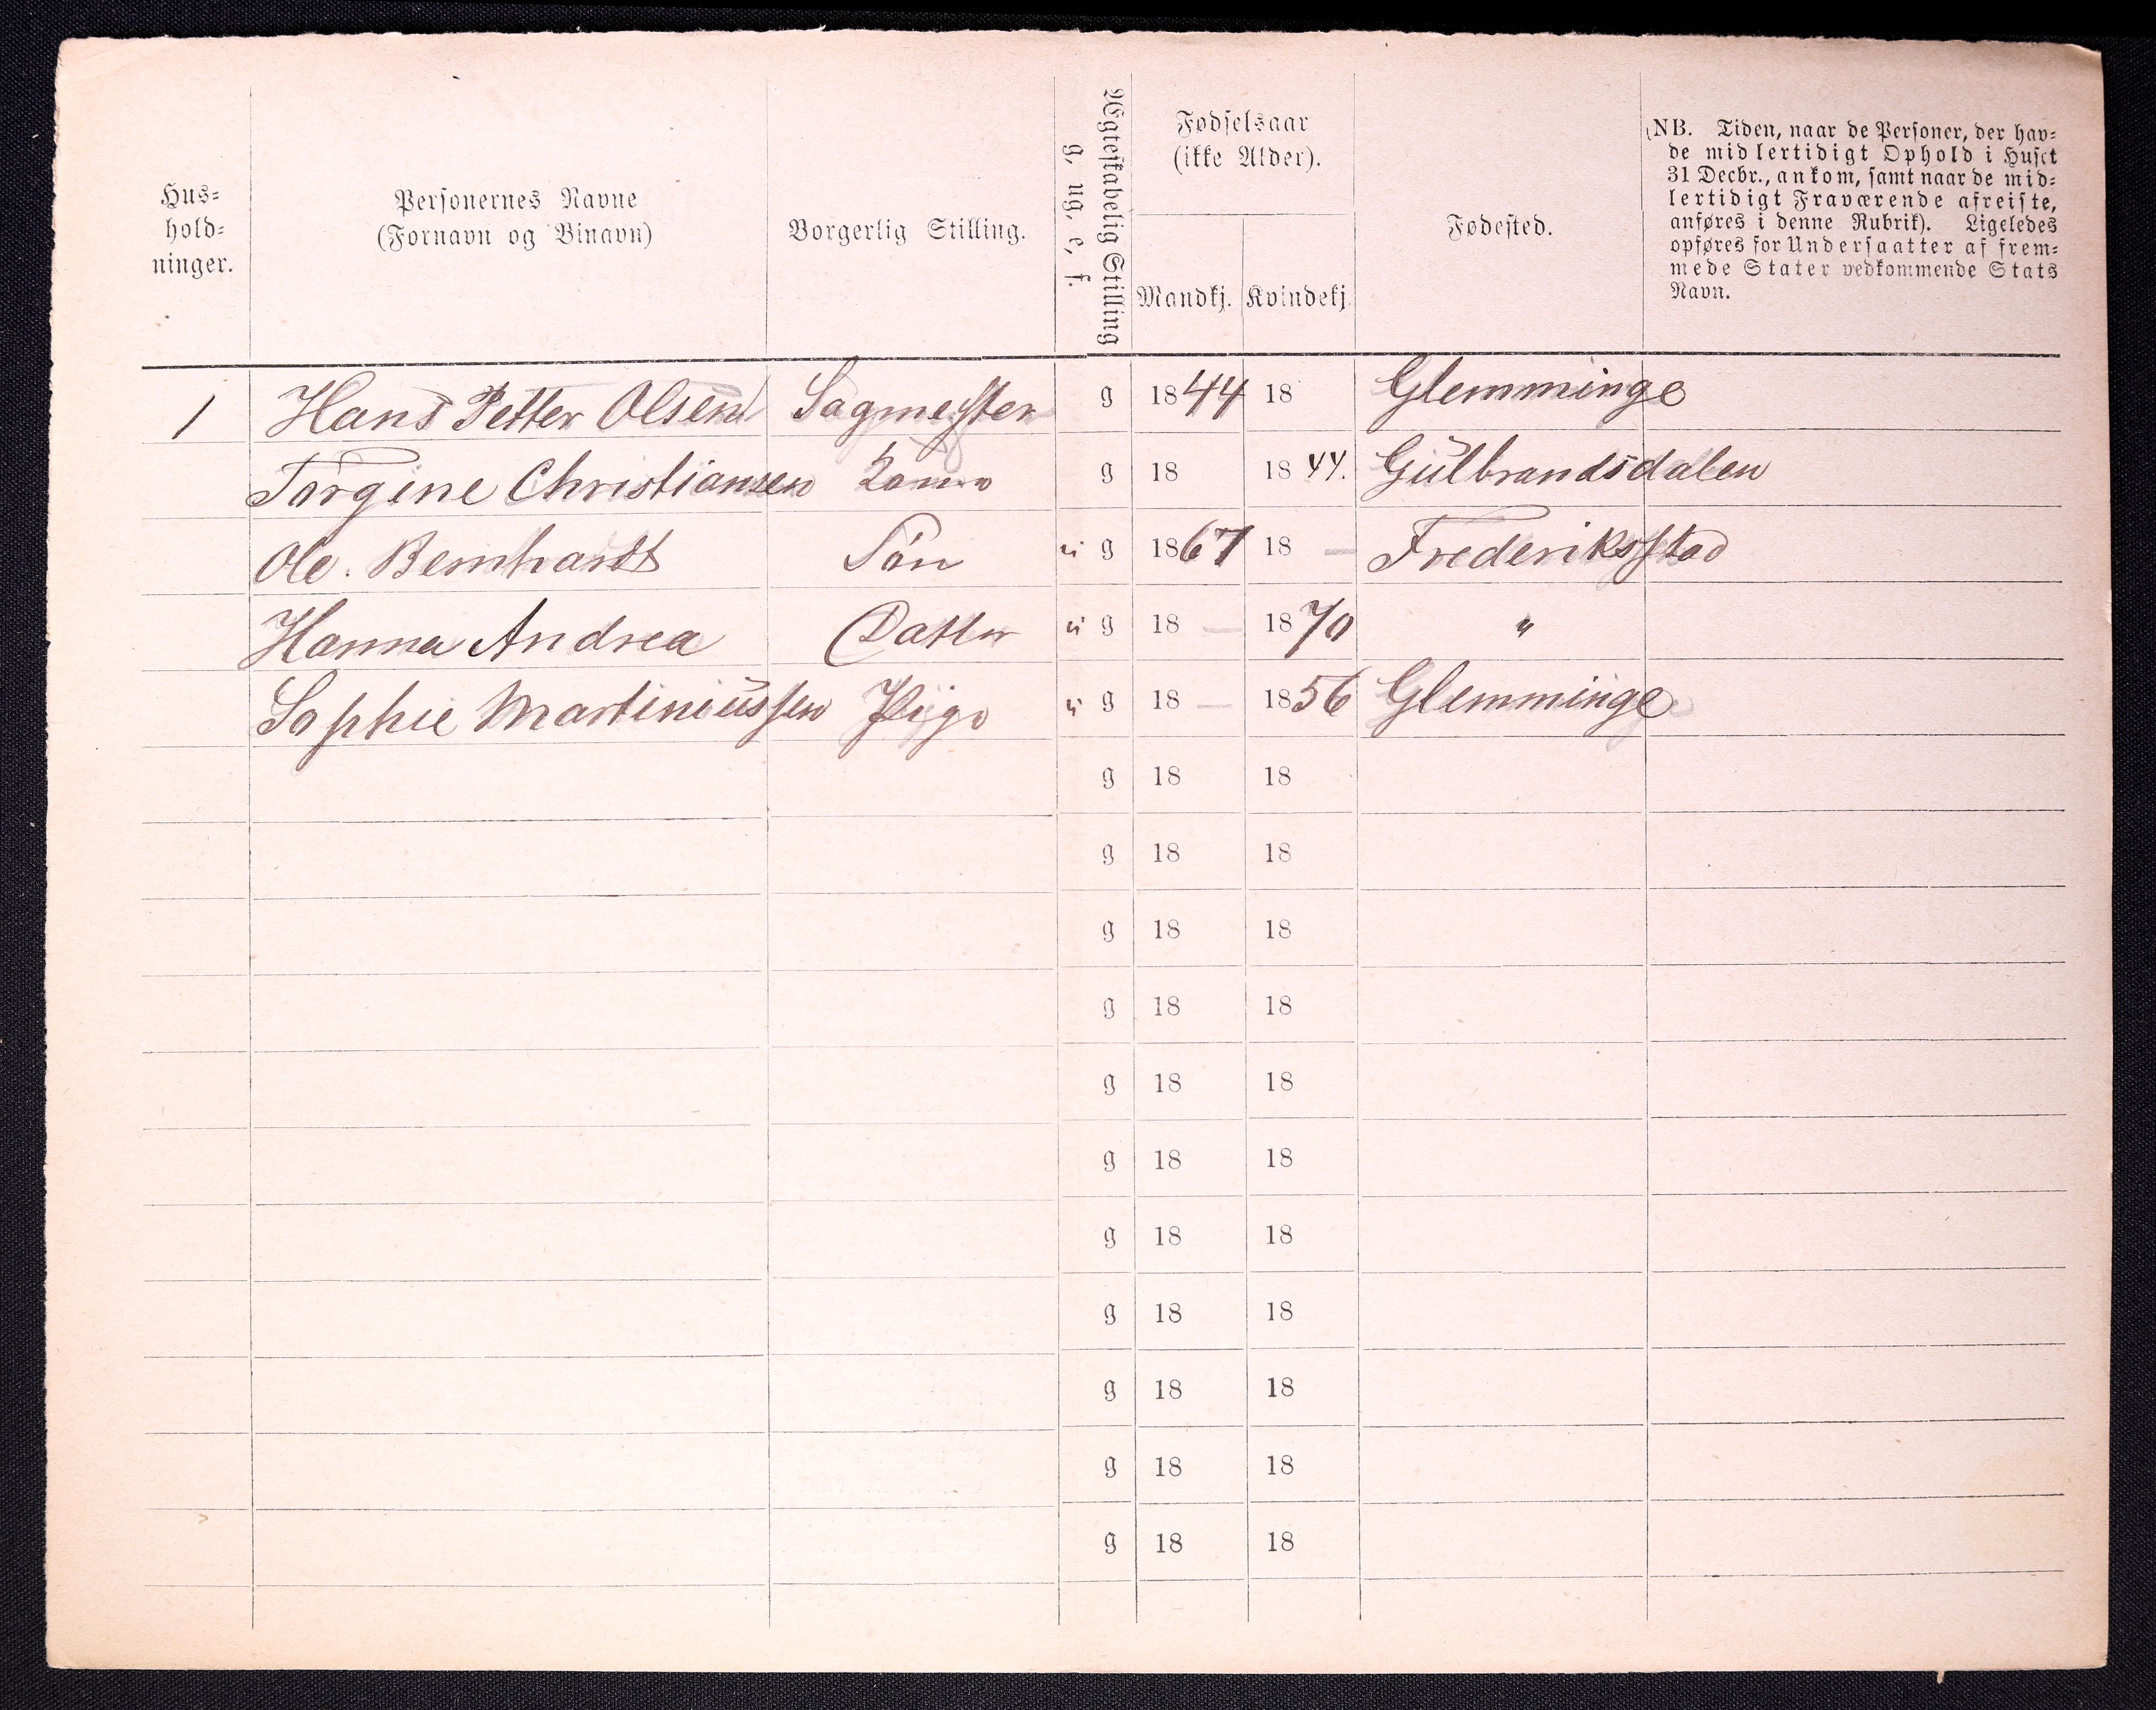 Hus-
hold-
ninger.
Personernes Navne
(Fornavn og Binavn)
Borgerlig Stilling.
Ægteskabelig Stilling
g, ug, e, f.
Fødselsaar
(ikke Alder).
Mandkj. Kvindekj.
Fødested.
(NB. Tiden, naar de Personer, der hav-
de midlertidigt Ophold i Huset
31 Decbr., ankom, samt naar de mid-
lertidigt Fraværende afreiste,
anføres i denne Rubrik). Ligeledes
opføres for Undersaatter af frem-
mede Stater vedkommende Stats
Navn.
1 Hans Petter Olsen Sagmester g 1844 18 Glemminge
Torgine Christiansen Kone g 18 1844. Gülbrandsdalen
Ole. Bernhardt Sön ü g 1867 18 — Frederiksstad
Hanna Andrea Datter ü g 18 — 1870 "
Sophie Martiniüssen Pige ü g 18 — 1856 Glemminge
g 18 18
g 18 18
g 18 18
g 18 18
g 18 18
g 18 18
g 18 18
g 18 18
g 18 18
g 18 18
g 18 18